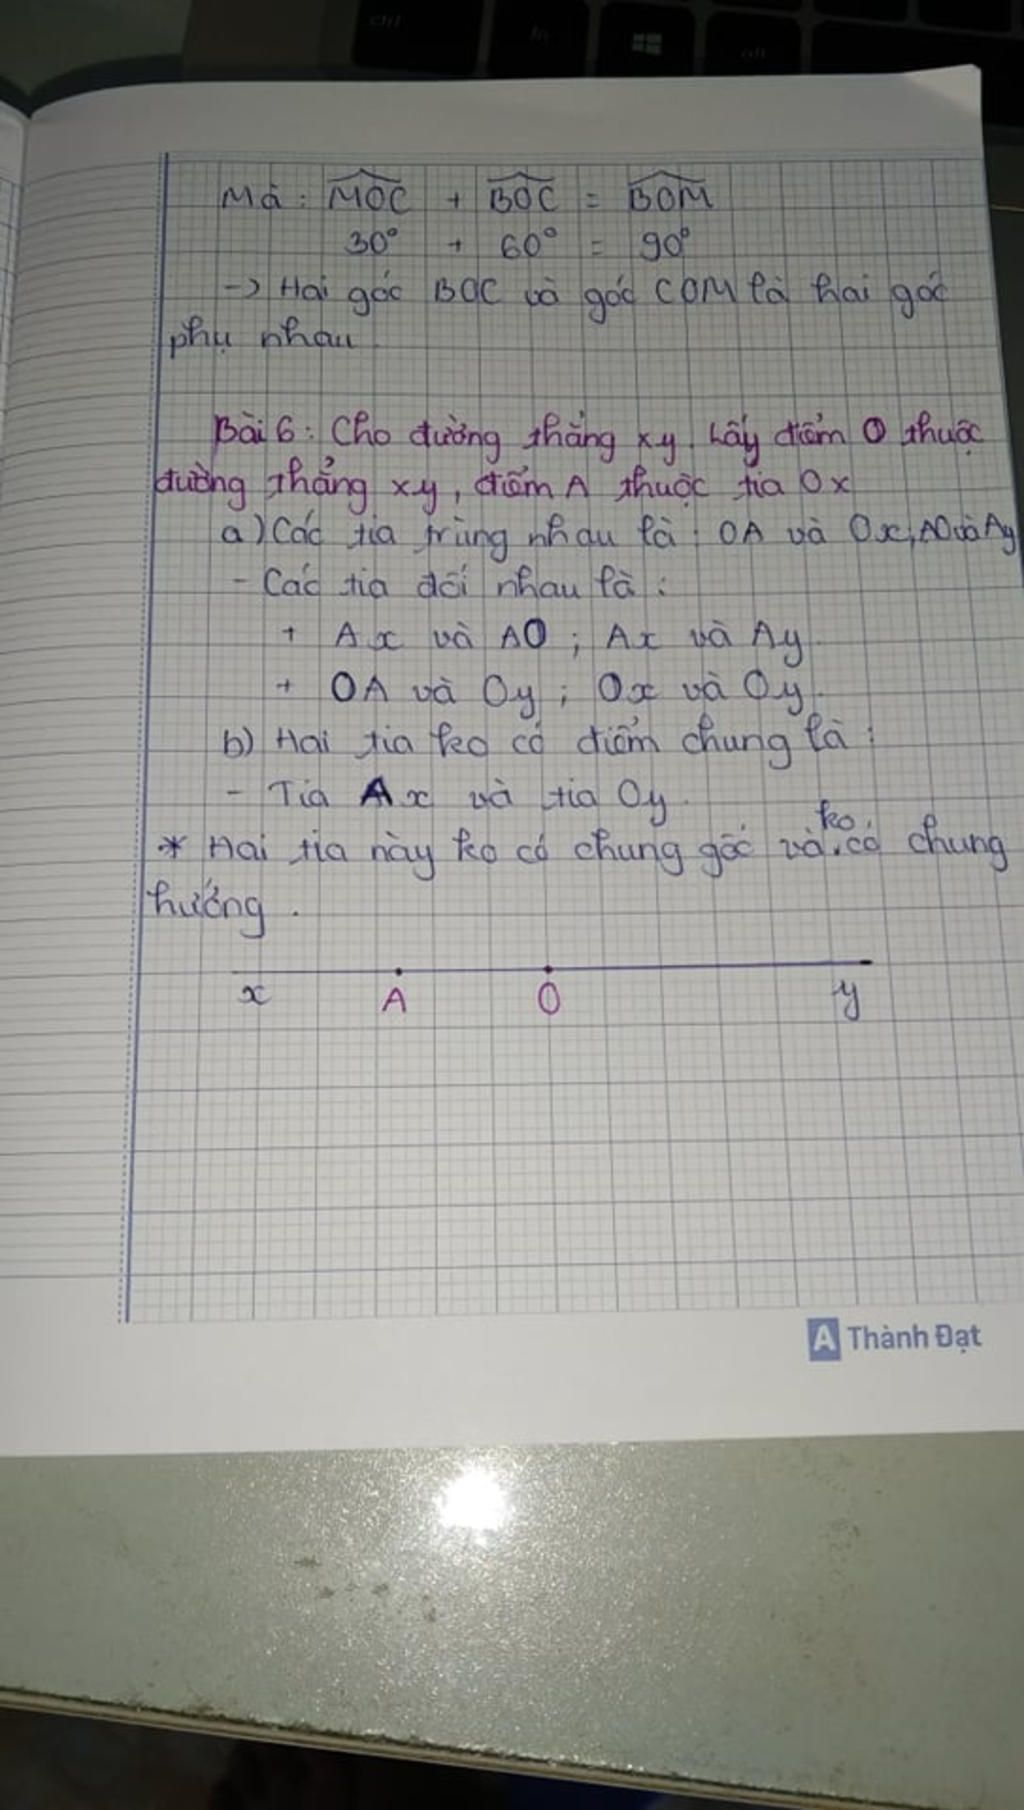 ctrl
fn
alt
Mà : MOC + BOC = BOM
30° + 60° = 90°
-> Hai góc BOC và góc COM là hai góc
phụ nhau.
Bài 6: Cho đường thẳng xy. Lấy điểm O thuộc
đường thẳng xy, điểm A thuộc tia Ox
a) Các tia trùng nhau là : OA và Ox, AO và Ay
- Các tia đối nhau là :
+ Ax và AO ; Ax và Ay.
+ OA và Oy ; Ox và Oy.
b) Hai tia ko có điểm chung là :
- Tia Ax và tia Oy.
* Hai tia này ko có chung gốc và ko có chung
hướng.
x A O y
A Thành Đạt